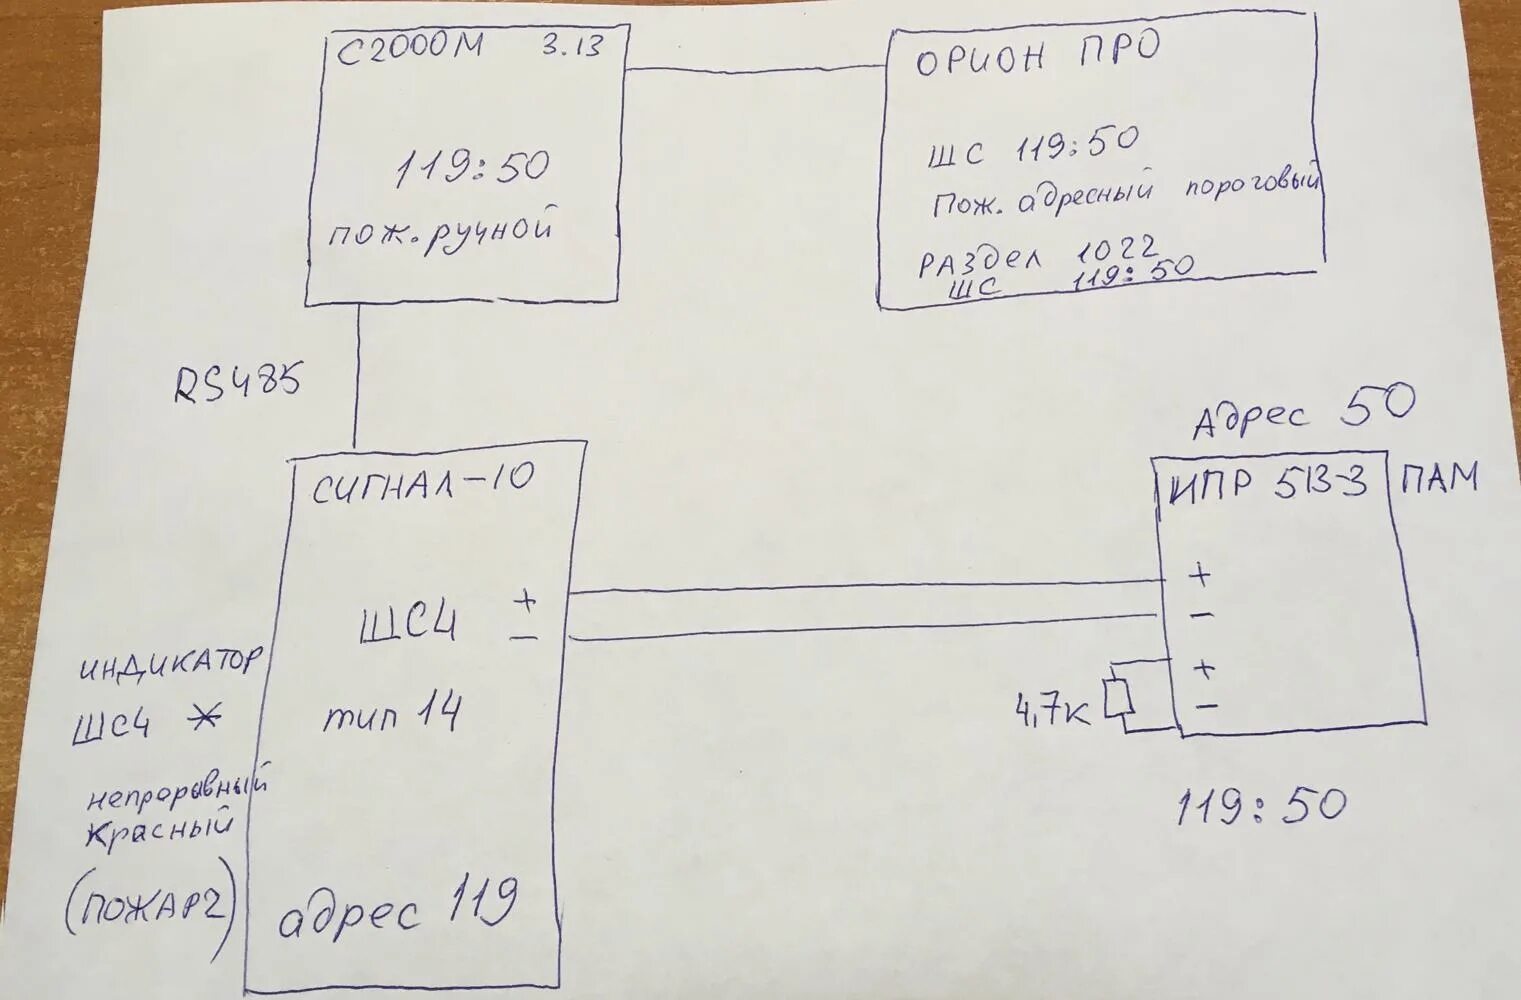 С2000М 3.13
119:50
пож. ручной
ОРИОН ПРО
ШС 119:50
Пож. адресный пороговый
РАЗДЕЛ 1022
ШС 119:50
RS485
СИГНАЛ-10
ШС4 +
–
тип 14
адрес 119
ИНДИКАТОР
ШС4 *
непрерывный
красный
(ПОЖАР2)
Адрес 50
ИПР 513-3 ПАМ
+
–
+
–
4,7к
119:50